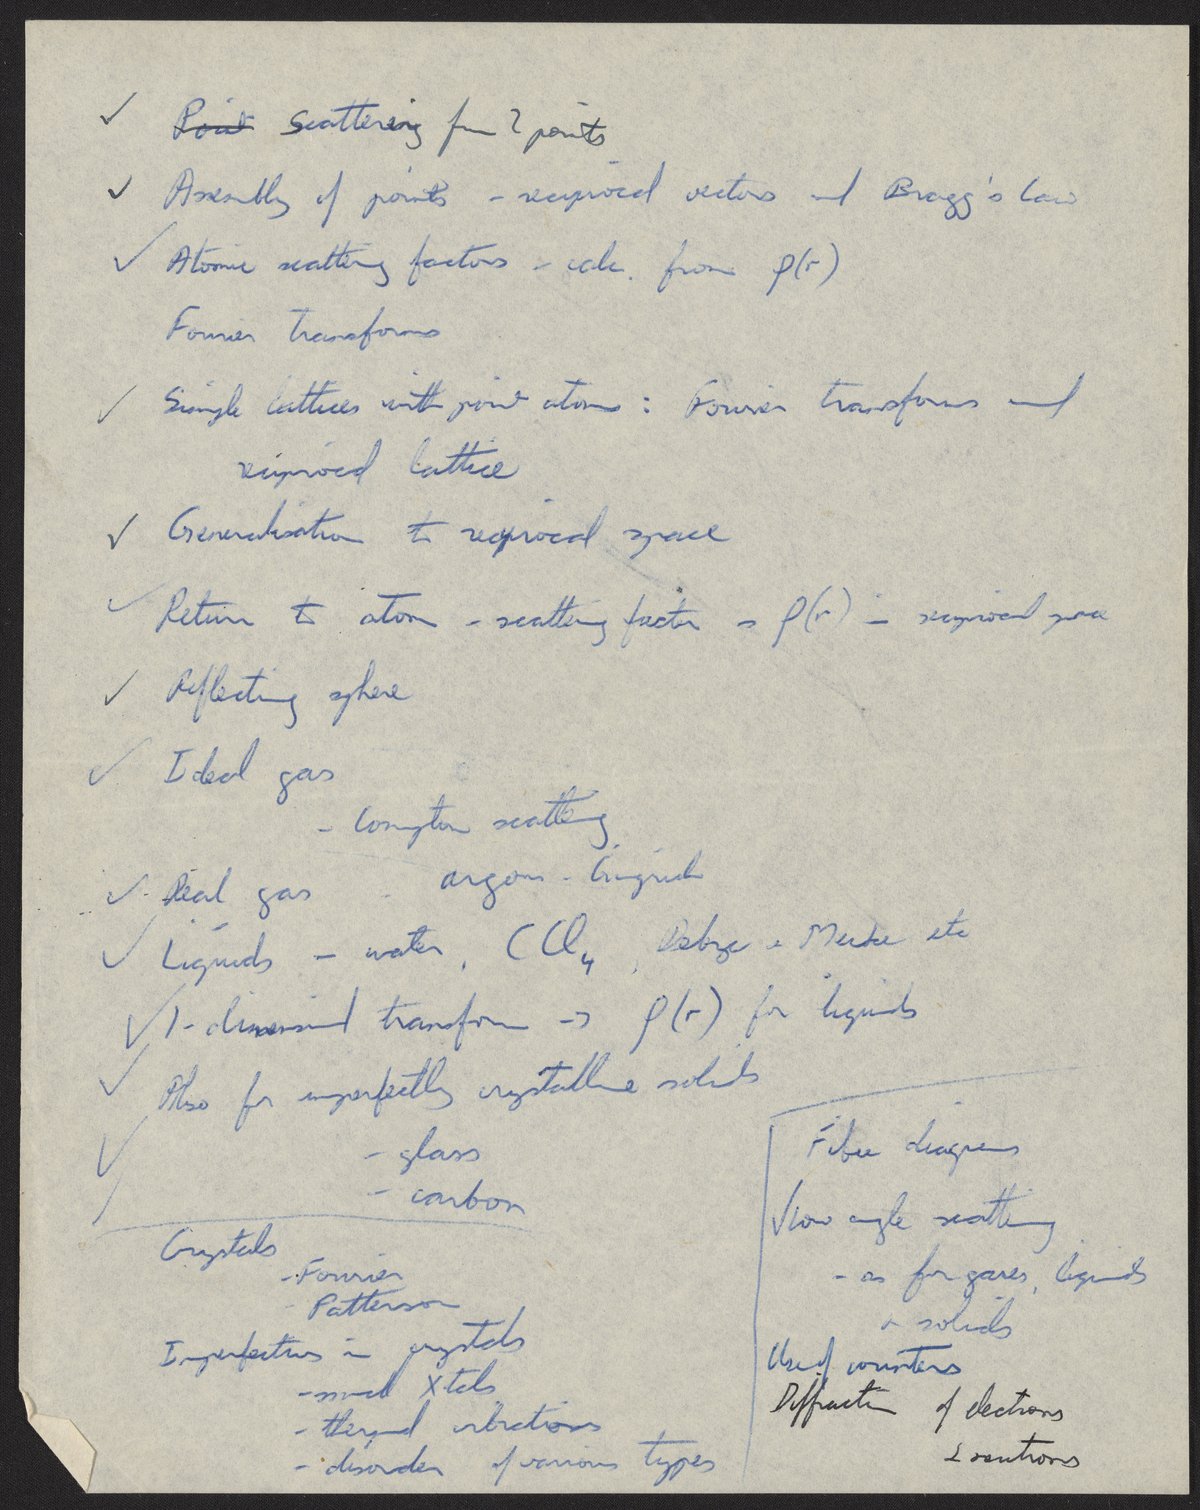 ✓ ~~Point~~ Scattering from 2 points
✓ Assembly of points - reciprocal vectors and Bragg's Law
✓ Atomic scattering factors - calc. from ρ(r)
Fourier transforms
✓ Simple lattices with point atoms : Fourier transforms and
reciprocal lattice
✓ Generalisation to reciprocal space
✓ Return to atom - scattering factor is ρ(r) in reciprocal space
✓ Reflecting sphere
✓ Ideal gas
- Compton scattering
✓ Real gas - argon - liquid
✓ Liquids - water, CCl4, Debye + Mencke etc
✓ 1-dimensional transform → ρ(r) for liquids
✓ Also for imperfectly crystalline solids
✓ - glass
- carbon
Crystals
- Fourier
- Patterson
Imperfections in crystals
- small Xtals
- thermal vibrations
- disorder of various types
Fibre diagrams
✓ low angle scattering
- as for gases, liquids
+ solids
Use of counters
Diffraction of electrons
& neutrons